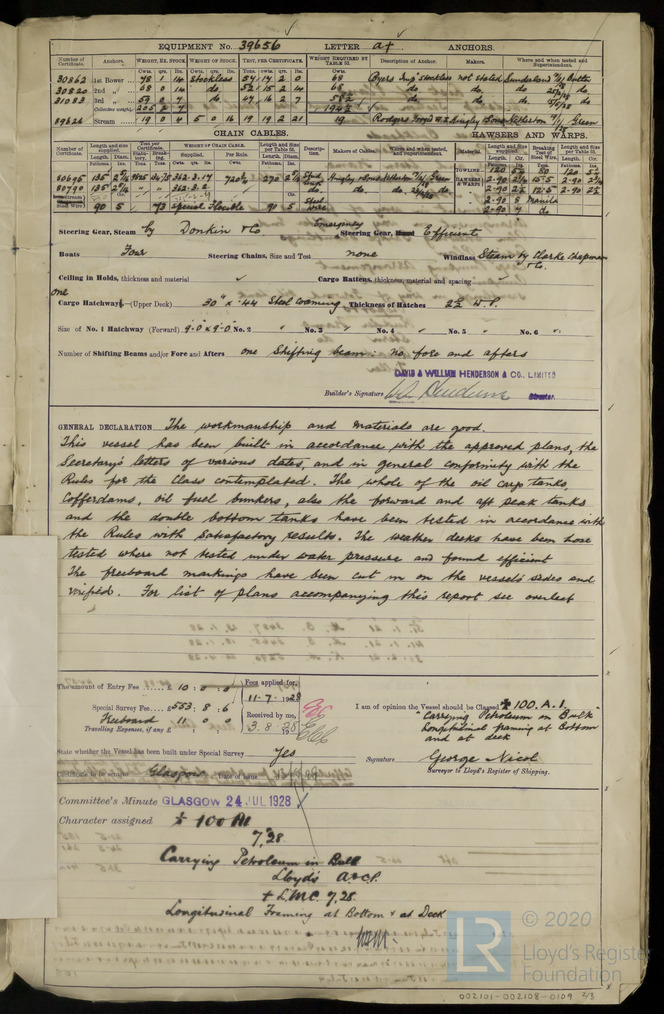 EQUIPMENT No. 39656 LETTER a† ANCHORS.
Number of Certificate. Anchors. WEIGHT, EX. STOCK. WEIGHT OF STOCK. TEST, PER CERTIFICATE. WEIGHT REQUIRED BY TABLE 31. Description of Anchor. Makers. Where and when tested and Superintendent.
30862 1st Bower 78 1 14 Stockless 57 17 2 0 68 Byers Imp Stockless not stated Sunderland Butler
30820 2nd „ 68 0 14 do. 52 15 2 14 68 do do.
31083 3rd „ 59 0 7 do. 47 16 2 7 58½ do. do.
Collective weight 205 2 7 194½
89626 Stream 19 0 4 5 0 16 19 19 2 21 19 Netherton Green
CHAIN CABLES. HAWSERS AND WARPS.
Number of Certificate. Length and size supplied. Test per Certificate. WEIGHT OF CHAIN CABLE. Length and size per Table 31. Description. Makers of Cables. Where and when tested, and Superintendent. Material. Length and size supplied. Breaking Test of Steel Wire. Length and size per Table 31.
Fathoms. Diam. Supplied. Per Rule. Fathoms. Diam. Fathoms. Cir. Tons. Fathoms. Cir.
80695 135 362.3.17 720¾ 270 Stud Green TOWLINE 120 120
80790 135 „ „ 362.3.2 do. do. HAWSERS & WARPS 2-90 15.5 2-90
2-90 12.5 2-90
Steel Wire 90 5 73 Special Flexible 90 5 Steel wire 2-90 8 Manila
2-90 7 do
Steering Gear, Steam by Donkin & Co Emergency Steering Gear, Hand Efficient
Boats Four Steering Chains, Size and Test none Windlass Steam by Clarke Chapman & Co.
Ceiling in Holds, thickness and material Cargo Battens, thickness, material and spacing
one
Cargo Hatchways—(Upper Deck) 30" x .44 Steel Coaming Thickness of Hatches 2½ W.P.
Size of No. 1 Hatchway (Forward) 9-0 x 9-0 No. 2 „ No. 3 No. 4 „ No. 5 „ No. 6 „
Number of Shifting Beams and/or Fore and Afters one Shifting beam: no fore and afters
DAVID & WILLIAM HENDERSON & CO., LIMITED
Builder's Signature Henderson Director.
GENERAL DECLARATION The workmanship and materials are good.
This vessel has been built in accordance with the approved plans, the
Secretary's letters of various dates, and in general conformity with the
Rules for the Class contemplated. The whole of the oil cargo tanks,
Cofferdams, oil fuel bunkers, also the forward and aft peak tanks
and the double bottom tanks have been tested in accordance with
the Rules with satisfactory results. The weather decks have been hose
tested where not tested under water pressure and found efficient
The freeboard markings have been cut in on the vessel's sides and
verified. For list of plans accompanying this report see overleaf
The amount of Entry Fee £ 10 : 0 : 0 Fees applied for, 11-7-1928
Special Survey Fee £553 : 8 : 6 Received by me, 3.8.28
Freeboard 11 0 0
Travelling Expenses, if any £
I am of opinion the Vessel should be Classed ✠ 100.A.1.
"Carrying Petroleum in Bulk"
Longitudinal framing at bottom
and at deck
State whether the Vessel has been built under Special Survey Yes
Signature George Nicol
Surveyor to Lloyd's Register of Shipping.
Certificate to be sent to Glasgow Date of issue
Committee's Minute GLASGOW 24 JUL 1928
Character assigned ✠ 100 A1
7,28
Carrying Petroleum in Bulk
Lloyd's A&CP.
✠ LMC. 7,28.
Longitudinal Framing at Bottom & at Deck
LR © 2020
Lloyd's Register
Foundation
002101-002108-0109 3/3